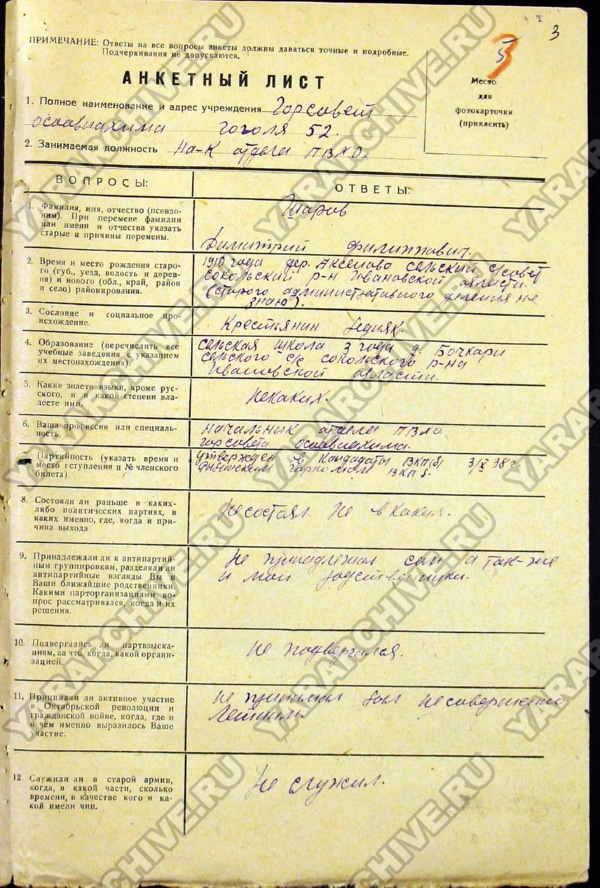 3
5
3
ПРИМЕЧАНИЕ: Ответы на все вопросы анкеты должны даваться точные и подробные.
Подчеркивания не допускаются.
АНКЕТНЫЙ ЛИСТ
Место
для
фотокарточки
(приклеить)
1. Полное наименование и адрес учреждения Горсовет
осоавиахима гоголя 52.
2. Занимаемая должность На-к отдела ПВХО.
ВОПРОСЫ:
ОТВЕТЫ:
1. Фамилия, имя, отчество (псевдо-
ним). При перемене фамилии
или имени и отчества указать
старые и причины перемены.
Шаров
Димитрий Филиппович.
2. Время и место рождения старо-
го (губ., уезд, волость и дерев-
ня) и нового (обл., край, район
и село) районирования.
1910 года дер. Аксеново сельский с/совет
сокольский р-н Ивановской области.
(старого административного деления не
знаю).
3. Сословие и социальное про-
исхождение.
Крестьянин бедняк.
4. Образование (перечислить все
учебные заведения с указанием
их местонахождения)
сельская школа 3 года д. Бочкари
с/с сокольского р-на
Ивановской области.
5. Какие знаете языки, кроме рус-
ского, и в какой степени вла-
деете ими.
Некаких.
6. Ваша профессия или специаль-
ность
начальник отдела ПВХО
горсовета осоавиахима.
7. Партийность (указать время и
место вступления и № членского
билета)
утвержден в кандидаты ВКП(б) 3/IX 38 г.
горкомом ВКПб.
8. Состояли ли раньше в каких-
либо политических партиях, в
каких именно, где, когда и при-
чина выхода
Несостоял не в каких.
9. Принадлежали ли к антипартий-
ным группировкам, разделяли ли
антипартийные взгляды Вы и
Ваши ближайшие родственники.
Какими парторганизациями во-
прос рассматривался, когда и их
решения.
Не принадлежал сам а так-же
и мои родственники.
10. Подвергались ли партвзыска-
ниям, за что, когда, какой органи-
зацией.
Не подвергался.
11. Принимали ли активное участие
в Октябрьской революции и
гражданской войне, когда, где и
в чем именно выразилось Ваше
участие.
Не принимал был несовершенно
летним.
12. Служили ли в старой армии,
когда, в какой части, сколько
времени, в качестве кого и ка-
кой имели чин.
Не служил.
YARARCHIVE.RU